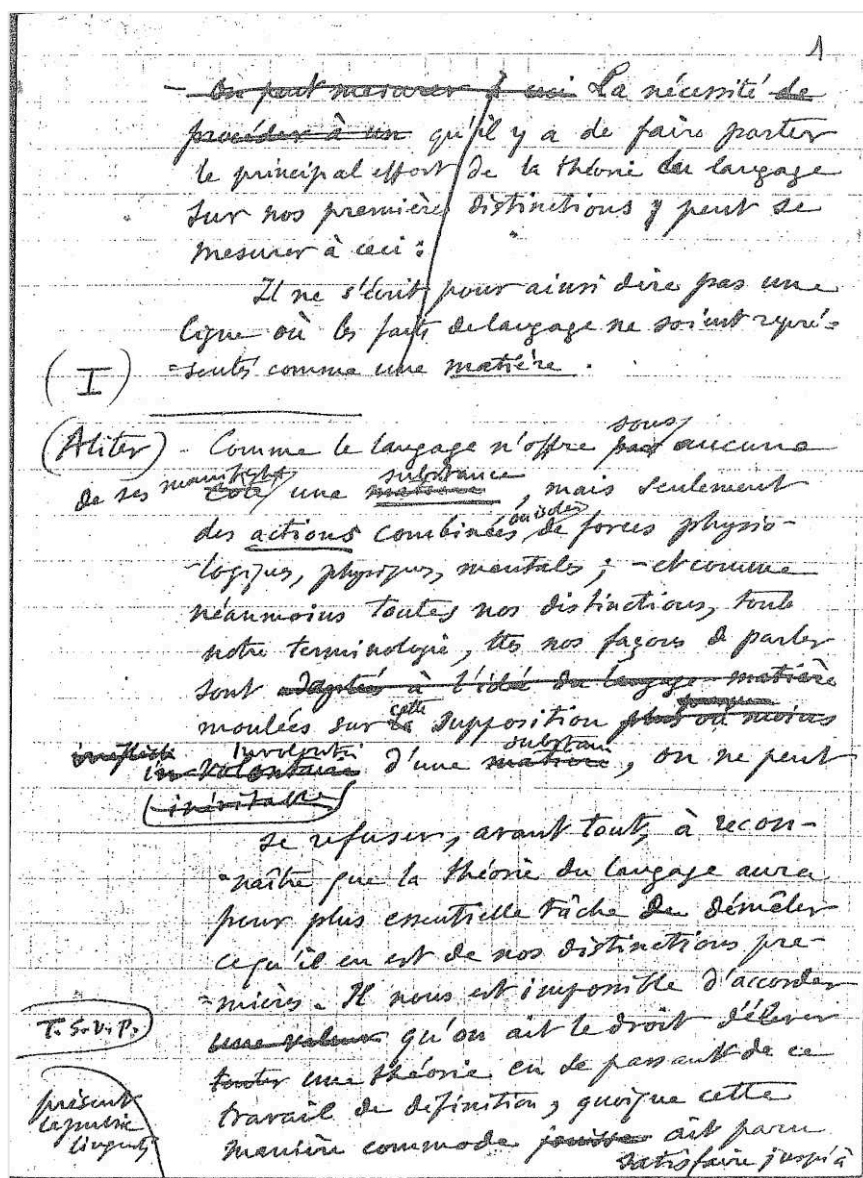 1
- On peut mesurer à ceci La nécessité de
procéder à un qu'il y a de faire porter
le principal effort de la théorie du langage
sur nos premières distinctions y peut se
mesurer à ceci :
Il ne s'écrit pour ainsi dire pas une
ligne où les faits de langage ne soient repré=
(I) =sentés comme une matière.
sous
(Aliter) - Comme le langage n'offre pas aucune
de ses manifestat côté une substance matière, mais seulement
des actions combinées ou isolées de forces physio-
-logiques, physiques, mentales ; - et comme
néanmoins toutes nos distinctions, toute
notre terminologie, ttes nos façons de parler
sont adaptés à l'idée du langage-matière
moulées sur cette la supposition plus ou moins
involontaire in-volontaire d'une substance matière, on ne peut
(inévitable)
se refuser, avant tout, à recon-
=naître que la théorie du langage aura
pour plus essentielle tâche de démêler
ce qu'il en est de nos distinctions pre-
=mières. Il nous est impossible d'accorder
T.S.V.P. une valeur qu'on ait le droit d'élever
toute une théorie en se passant de ce
travail de définition, quoique cette
manière commode jouisse ait paru
satisfaire jusqu'à
présent
le public
linguist